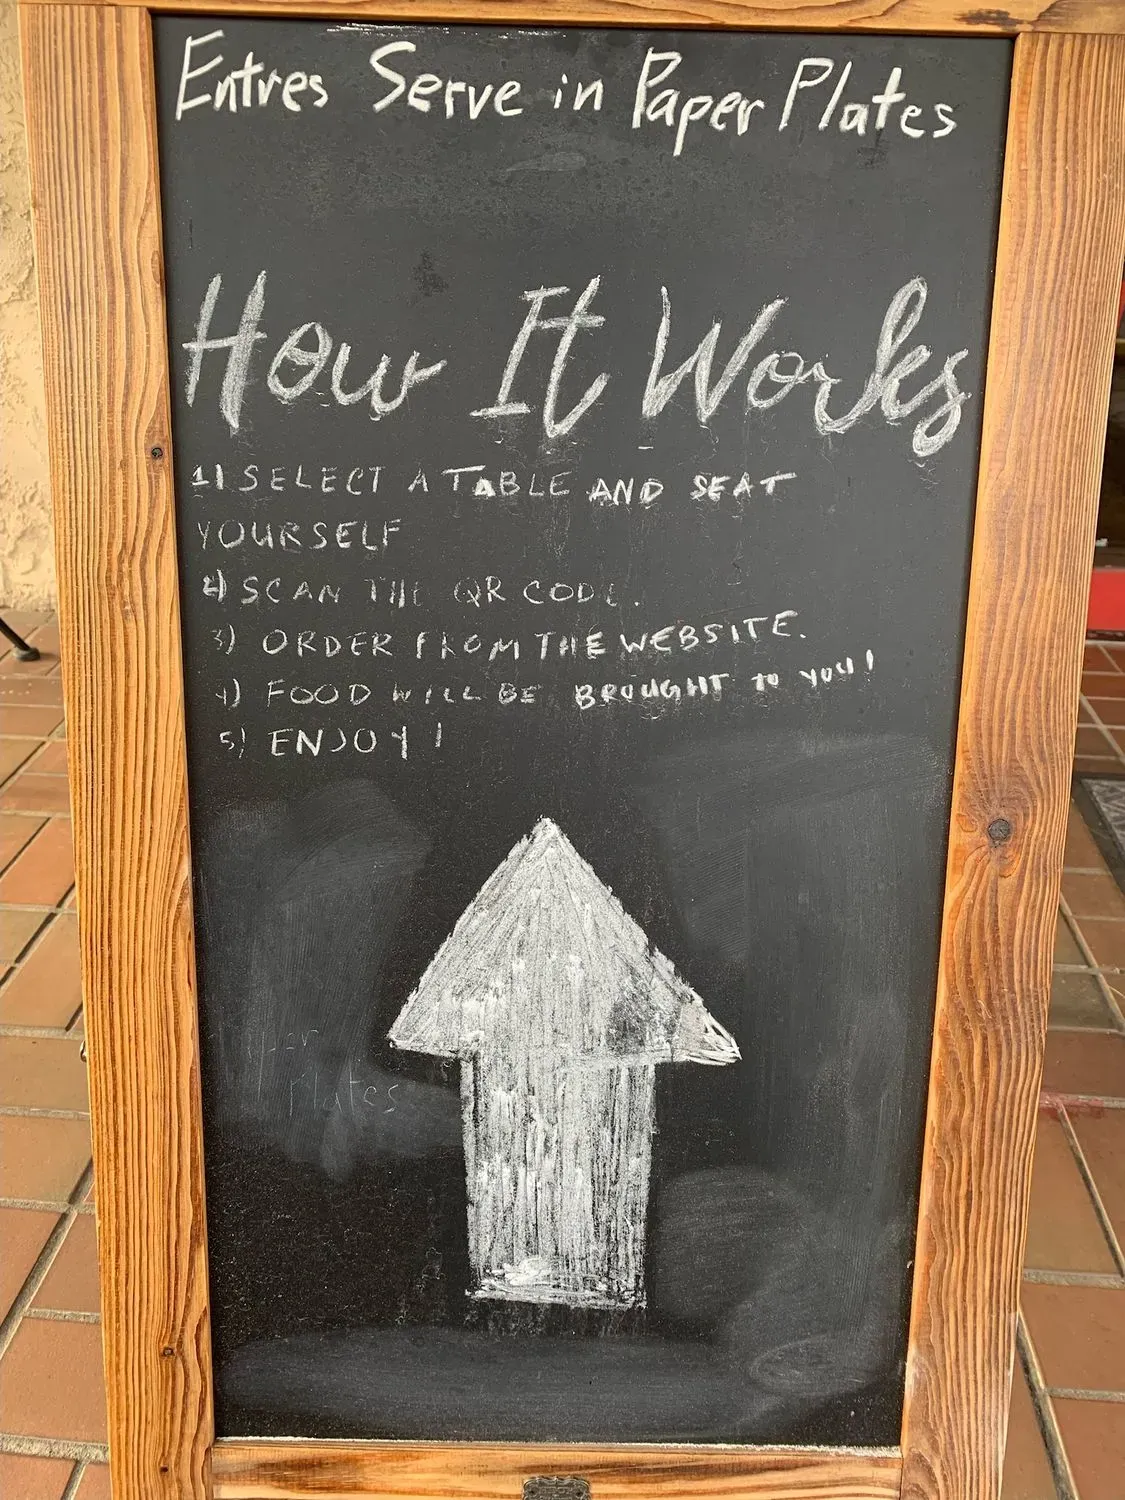 Entres Serve in Paper Plates
How It Works
1) SELECT A TABLE AND SEAT
YOURSELF
2) SCAN THE QR CODE.
3) ORDER FROM THE WEBSITE.
4) FOOD WILL BE BROUGHT TO YOU!
5) ENJOY!
Plates